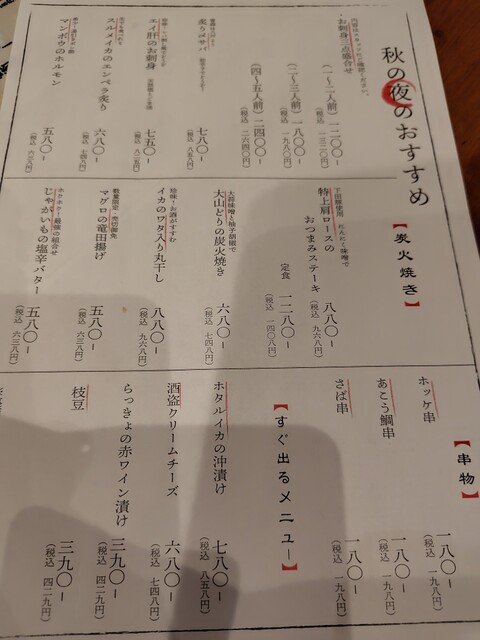 秋の夜のおすすめ
内容はスタッフにご確認ください。
・お刺身三点盛合せ
（一～二人前）一二〇〇ー
（税込 一三二〇円）
（二～三人前）一八〇〇ー
（税込 一九八〇円）
（四～五人前）二四〇〇ー
（税込 二六四〇円）
炙り〆サバ
七八〇ー
（税込 八五八円）
エイ肝のお刺身
七五〇ー
（税込 八二五円）
スルメイカのエンペラ炙り
六八〇ー
（税込 七四八円）
マンボウのホルモン
五八〇ー
（税込 六三八円）
【炭火焼き】
下田豚使用 にんにく味噌で
特上肩ロースの
おつまみステーキ
八八〇ー
（税込 九六八円）
定食
一二八〇ー
（税込 一四〇八円）
大蒜味噌と柚子胡椒で
大山どりの炭火焼き
六八〇ー
（税込 七四八円）
珍味！お酒がすすむ
イカのワタ入り丸干し
八八〇ー
（税込 九六八円）
数量限定・売切御免
マグロの竜田揚げ
五八〇ー
（税込 六三八円）
ホクホク！最強の組合せ
じゃがいもの塩辛バター
五八〇ー
（税込 六三八円）
【串物】
ホッケ串
一八〇ー
（税込 一九八円）
あこう鯛串
一八〇ー
（税込 一九八円）
さば串
一八〇ー
（税込 一九八円）
【すぐ出るメニュー】
ホタルイカの沖漬け
七八〇ー
（税込 八五八円）
酒盗クリームチーズ
六八〇ー
（税込 七四八円）
らっきょの赤ワイン漬け
三九〇ー
（税込 四二九円）
枝豆
三九〇ー
（税込 四二九円）